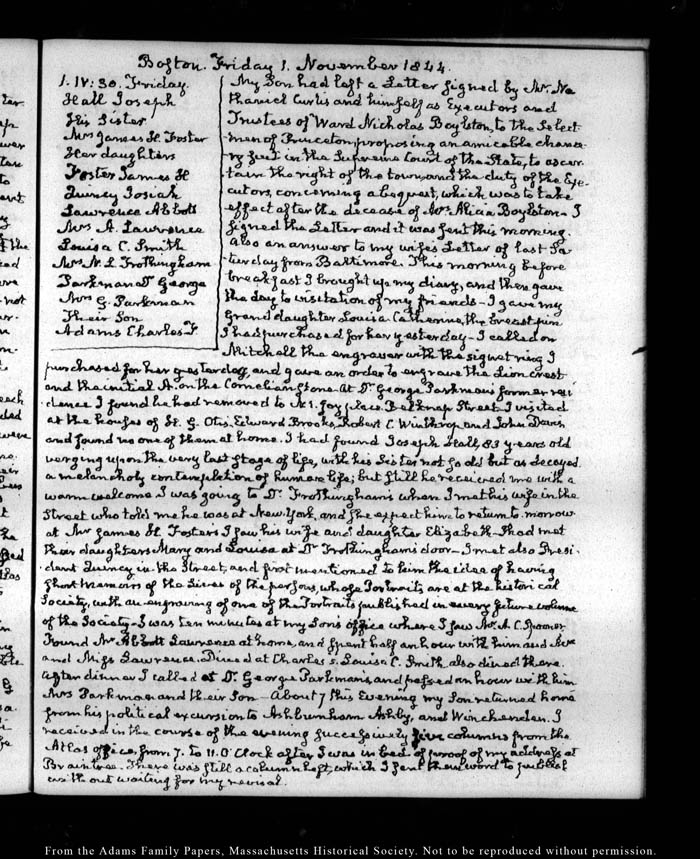 Boston. Friday 1. November 1844.
1. IV:30. Friday.
Hall Joseph
His Sister
Mrs James H. Foster
Her daughters
Foster James H
Quincy Josiah
Lawrence Abbott
Mrs A. Lawrence
Louisa C. Smith
Mrs N. L. Frothingham
Parkman Dr George
Mrs G. Parkman
Their Son
Adams Charles F
My Son had left a Letter signed by Mr. Na-
thaniel Curtis and himself as Executors and
Trustees of Ward Nicholas Boylston, to the Select-
men of Princeton proposing an amicable chance-
ry suit in the Supreme Court of the State, to ascer-
tain the right of the town, and the duty of the Exe-
cutors, concerning a bequest, which was to take
effect after the decease of Mrs. Alicia Boylston - I
signed the Letter and it was sent this morning.
Also an answer to my wife's Letter of last Sa-
turday from Baltimore. This morning before
breakfast I brought up my diary, and then gave
the day to visitation of my friends - I gave my
Granddaughter Louisa Catherine, the breast pin
I had purchased for her yesterday - I called on
Mitchell the engraver with the signet ring I
purchased for her yesterday, and gave an order to engrave the Lion crest
and the initial A. on the Cornelian stone. At Dr George Parkman's former resi-
dence I found he had removed to N. 1. Joy place Belknap Street. I visited
at the houses of H. G. Otis, Edward Brooks, Robert C. Winthrop and John Davis
and found no one of them at home. I had found Joseph Hall, 83 years old
verging upon the very last stage of life, with his Sister not so old but as decayed.
a melancholy contemplation of human life; but still he received me with a
warm welcome. I was going to Dr. Frothingham's when I met his wife in the
Street who told me he was at New York, and she expect him to return to-morrow
at Mr James H. Foster's I saw his wife and daughter Elizabeth. I had met
their daughters Mary and Louisa at Dr Frothingham's door - I met also Presi-
dent Quincy in the Street, and first mentioned to him the idea of having
short memoirs of the Lives of the persons, whose Portraits are at the historical
Society, with an engraving of one of the Portraits published in every future volume
of the Society - I was ten minutes at my Son's office where I saw Mr. A. C. Spooner
Found Mr Abbott Lawrence at home, and spent half an hour with him and Mrs
and Miss Lawrence. Dined at Charles's. Louisa C. Smith, also dined there.
After dinner I called at Dr. George Parkman's and passed an hour with him
Mrs Parkman and their Son - About 7 this Evening my Son returned home
from his political excursion to Ashburnham Ashby, and Winchendon. I
received in the course of the evening successively five columns from the
Atlas office, from 7. to 11. O'Clock after I was in bed of proof of my address at
Braintree. There was still a column left, which I sent them word to publish
without waiting for my revisal.
From the Adams Family Papers, Massachusetts Historical Society. Not to be reproduced without permission.